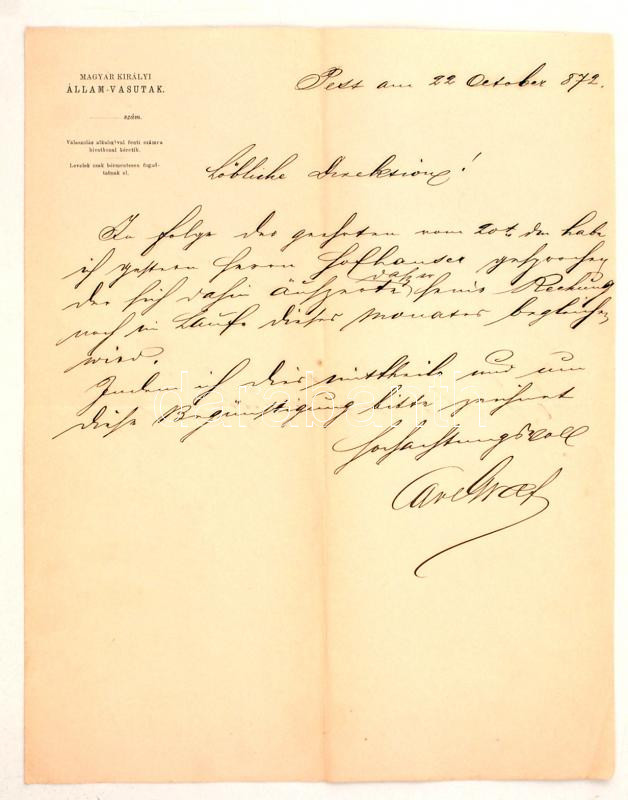 MAGYAR KIRÁLYI
ÁLLAM-VASUTAK.
szám.
Válaszolás alkalmával fenti számra
hivatkozni kéretik.
Levelek csak bérmentesen fogad-
tatnak el.
Pest am 22 October 872.
Löbliche Direktion!
In folge des geehrten vom 20t. dm habe
ich gestern Herrn Hofhauser gesprochen
der sich dahin äußerte, daß er seine Rechnung
noch im Laufe dieses Monates begleichen
wird.
Indem ich dies mittheile und um
diese Begünstigung bitte zeichnet
Hochachtungsvoll
Carl Graf
darabanth